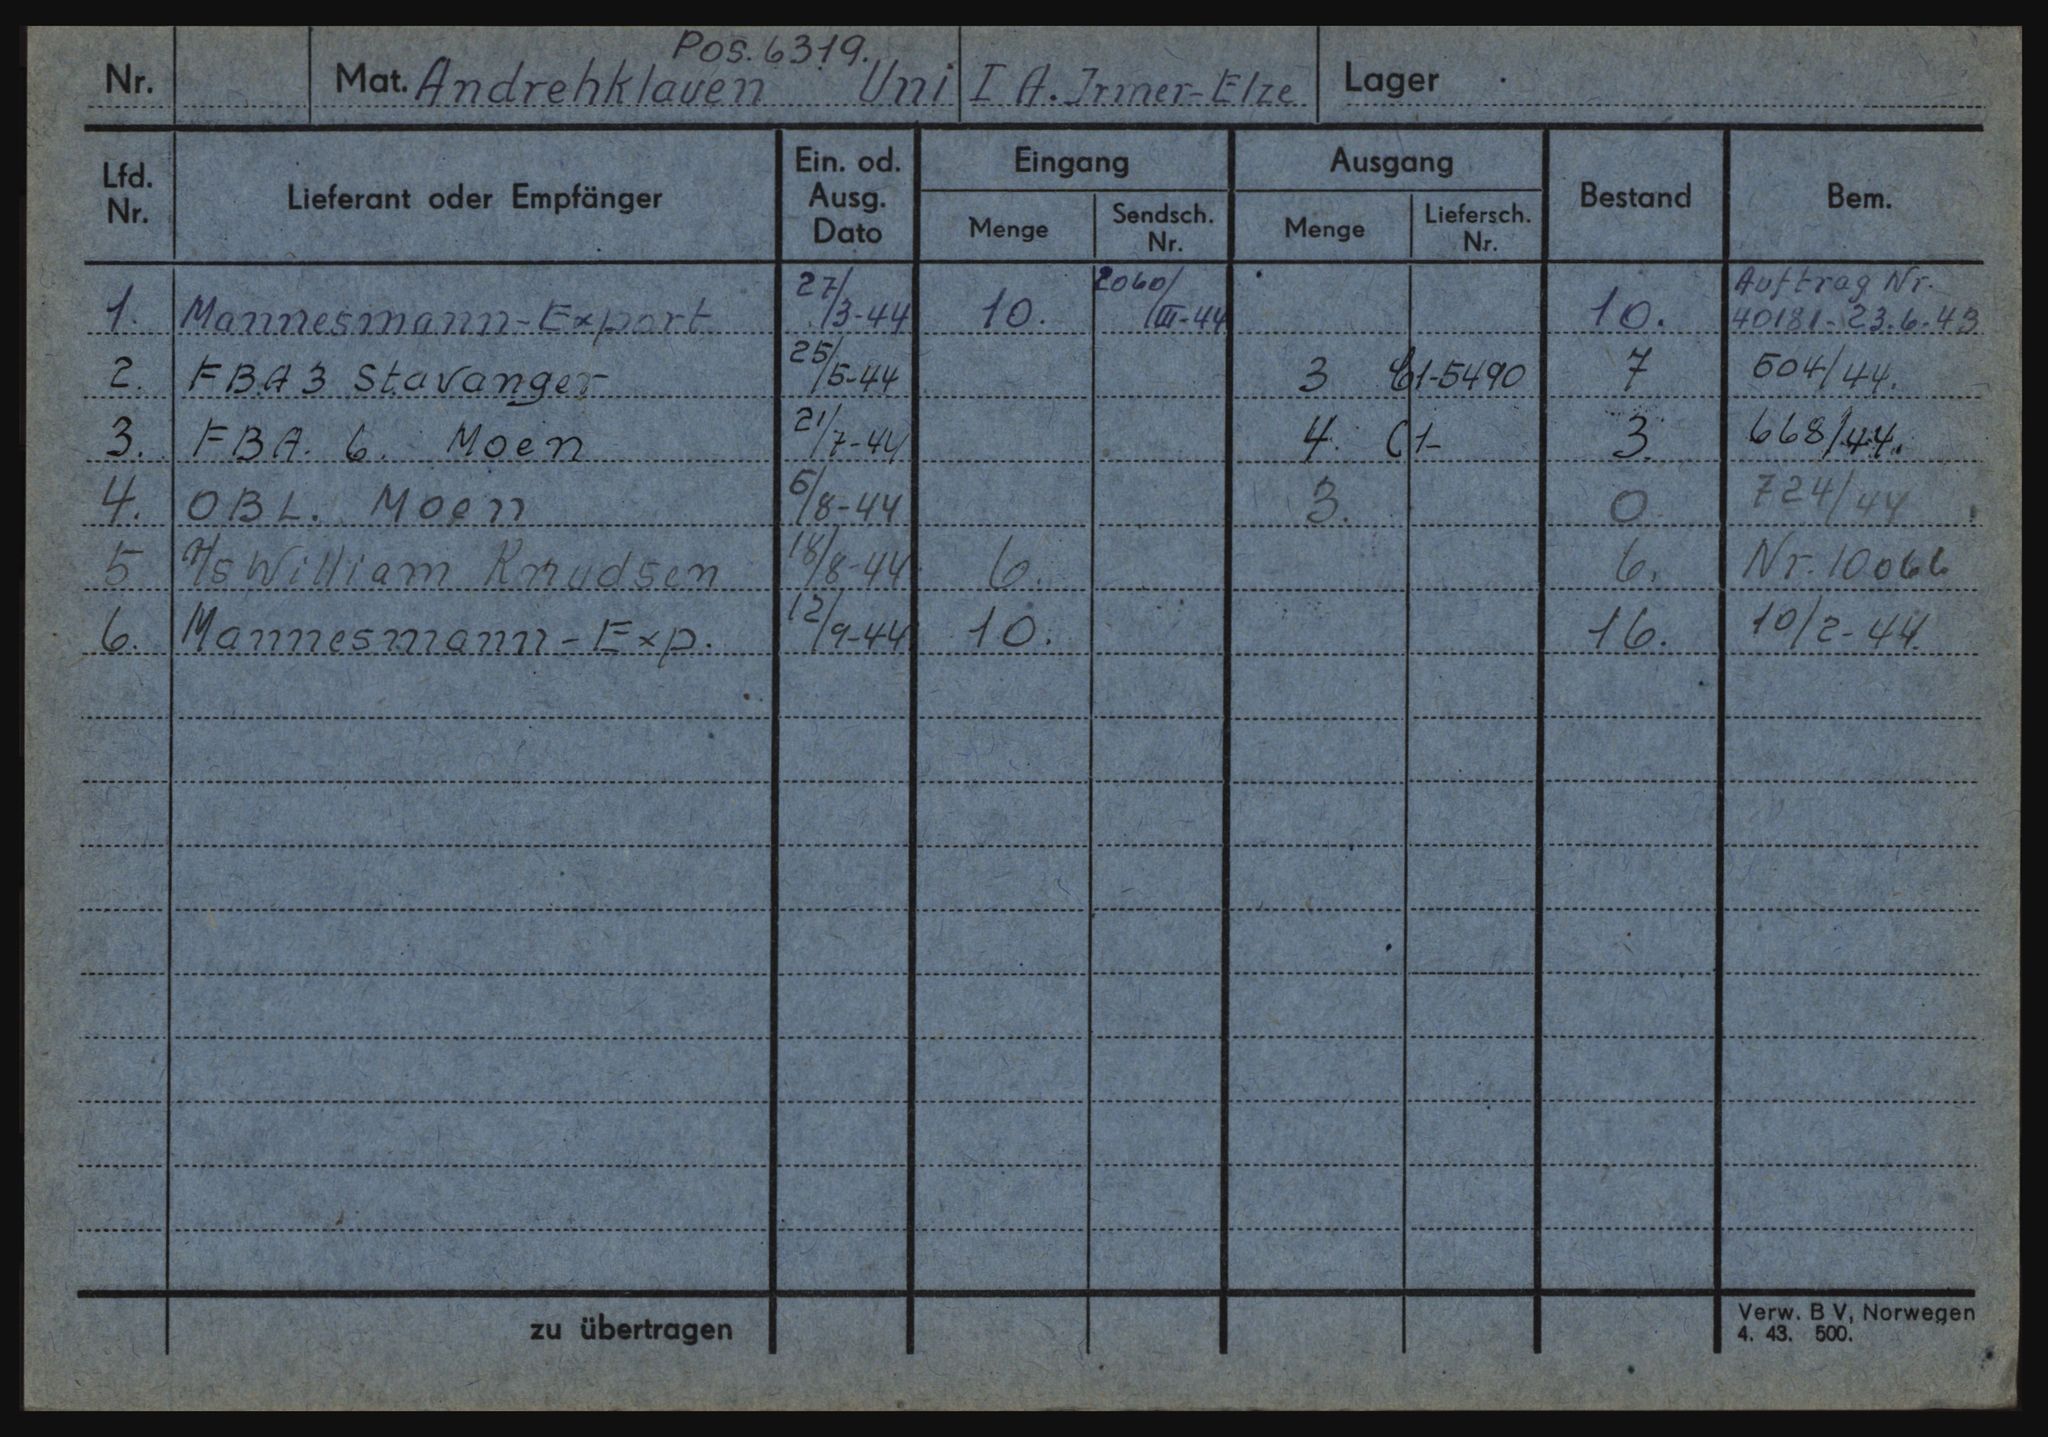 Pos. 6319.
Nr. Mat. Andrehklauen Uni I A. Irmer-Elze Lager
Lfd. Nr. Lieferant oder Empfänger Ein. od. Ausg. Dato Eingang Ausgang Bestand Bem.
Menge Sendsch. Nr. Menge Liefersch. Nr.
1. Mannesmann-Export 27/3-44 10. 2060/III-44 10. Auftrag Nr. 40181-23.6.43
2. FBA 3 Stavanger 25/5-44 3 C1-5490 7 504/44.
3. FBA. 6. Moen 21/7-44 4. C1- 3. 668/44.
4. OBL. Moen 6/8-44 3. 0. 724/44
5 William Knudsen 18/8-44 6. 6. Nr. 10066
6. Mannesmann-Exp. 12/9-44 10. 16. 10/2-44.
zu übertragen
Verw. B V, Norwegen
4. 43. 500.